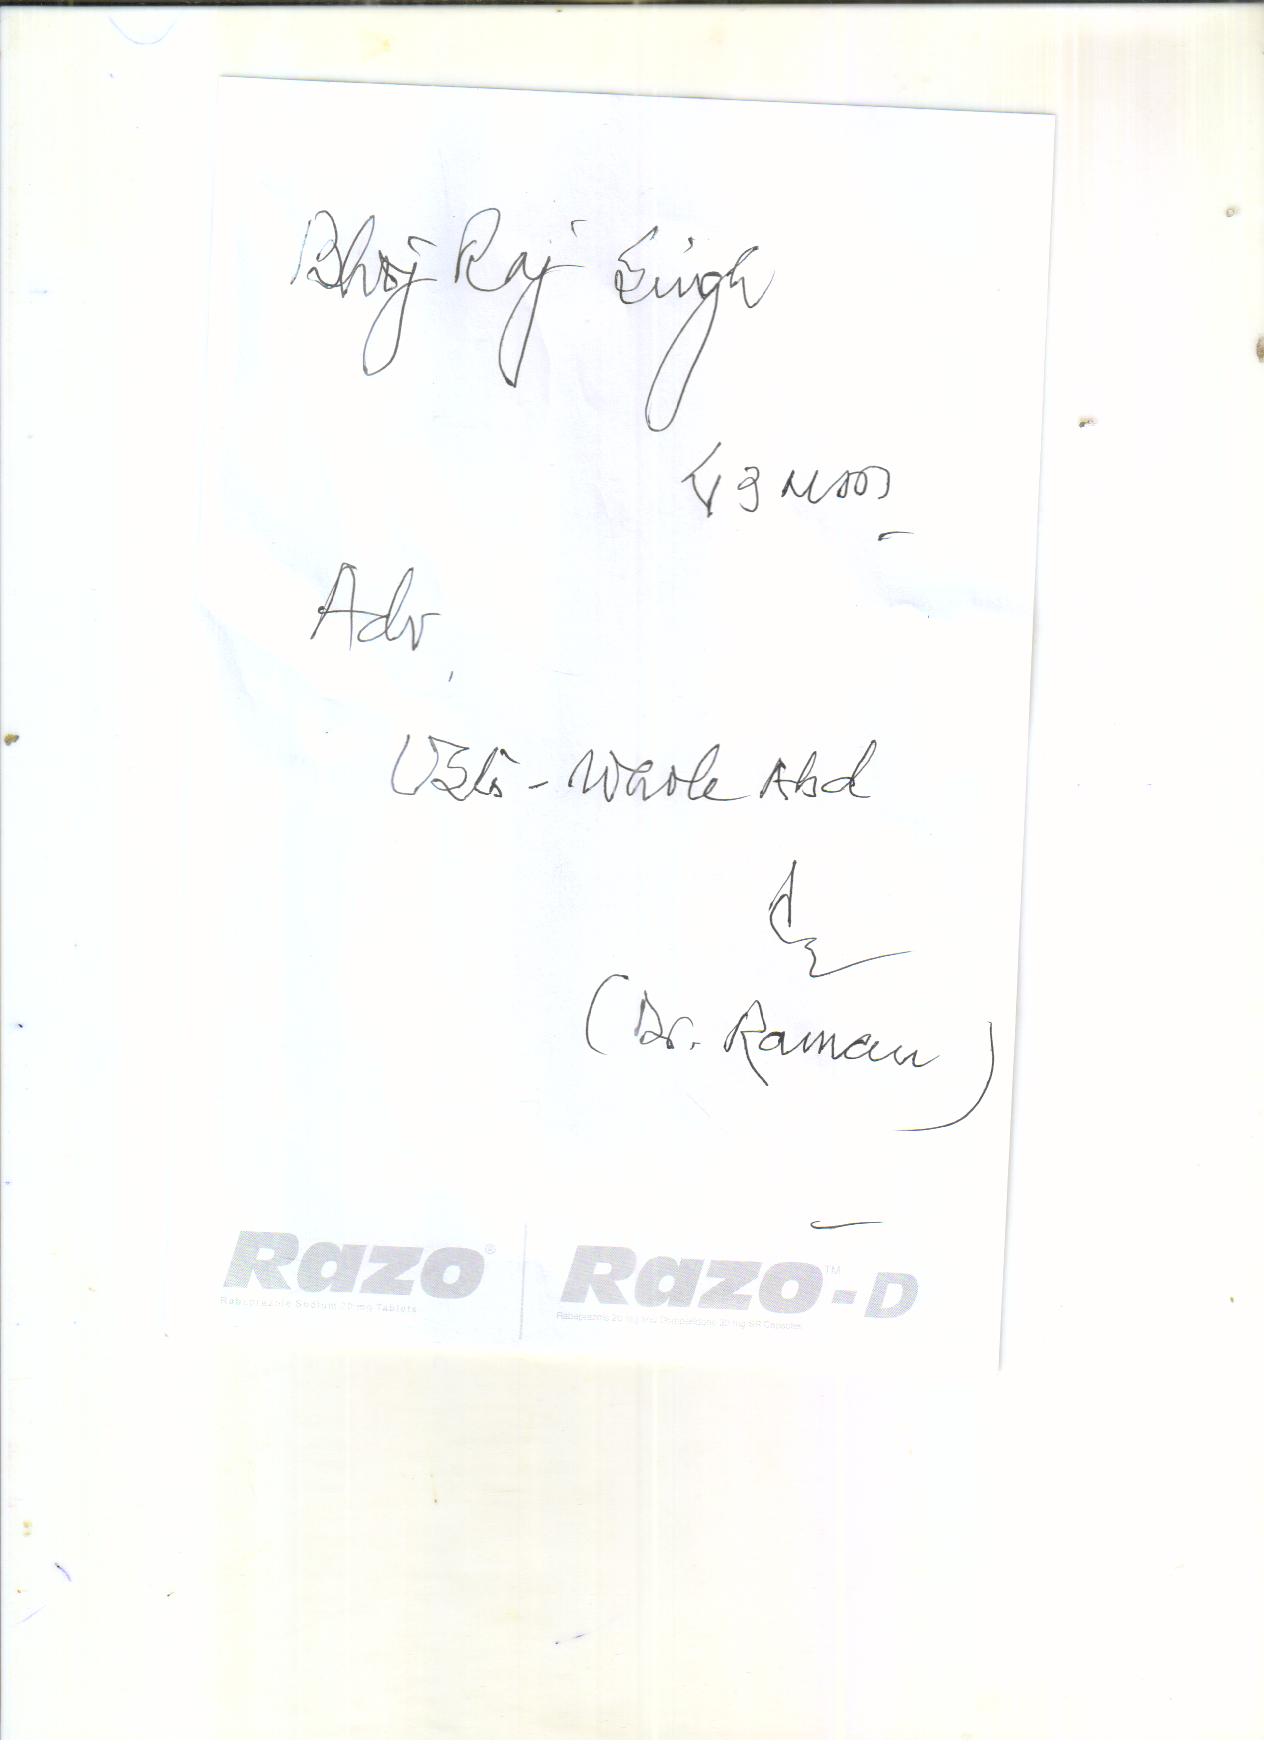 Bhoj Raj Singh
Adv.
USG - Whole Abd
(Dr. Raman)
Razo® Razo™-D
Rabeprazole Sodium 20 mg Tablets
Rabeprazole 20 mg and Domperidone 30 mg SR Capsules